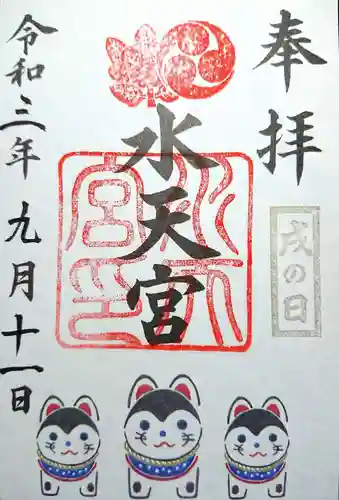 奉拝
戌の日
水天宮
水天宮印
令和三年九月十一日